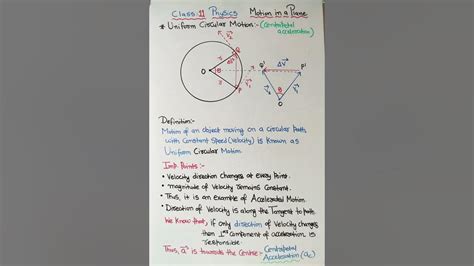 Class:11 Physics Motion in a Plane
* Uniform Circular Motion:- (Centripetal acceleration)
O θ P
Q' Δv P'
θ
O
Definition:-
Motion of an object moving on a Circular Path
with Constant Speed (Velocity) is Known as
Uniform Circular Motion.
Imp. Points:-
• Velocity direction changes at every Point.
• magnitude of Velocity remains Constant.
• Thus, it is an example of Accelerated Motion
• Direction of Velocity is along the Tangent to path.
We Know that, if only direction of Velocity changes
then component of acceleration is
responsible.
Thus, a is towards the Centre:- Centripetal
Acceleration (ac)